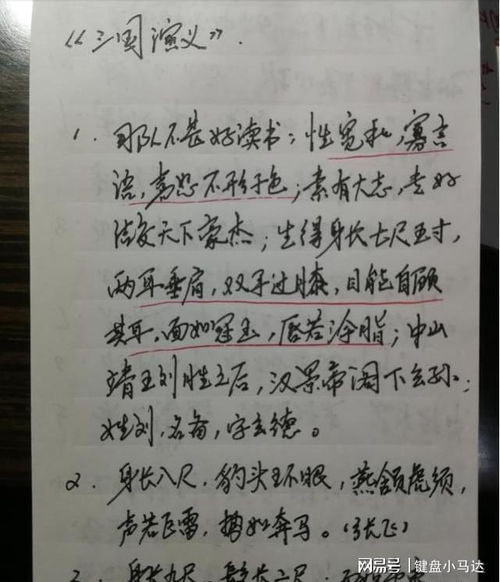 《三国演义》.
1. 那人不甚好读书；性宽和，寡言
语，喜怒不形于色；素有大志，专好
结交天下豪杰；生得身长七尺五寸，
两耳垂肩，双手过膝，目能自顾
其耳，面如冠玉，唇若涂脂；中山
靖王刘胜之后，汉景帝阁下玄孙；
姓刘，名备，字玄德。
2. 身长八尺，豹头环眼，燕颔虎须，
声若巨雷，势如奔马。（张飞）
身长九尺，髯长二尺，
网易号 | 键盘小马达